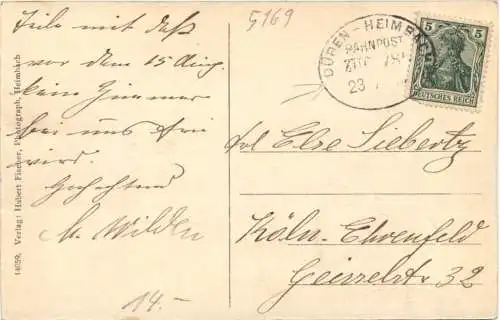 Teile mit daß
vor dem 15 Aug.
kein Zimmer
bei uns frei
wird.
Hochachtend
M. Wilden
14.-
5169
DÜREN - HEIMBACH
BAHNPOST
ZUG
23
5
DEUTSCHES REICH
Frl Else Siebertz
Köln-Ehrenfeld
Geisselstr. 32
14059. Verlag: Hubert Fischer, Photograph, Heimbach